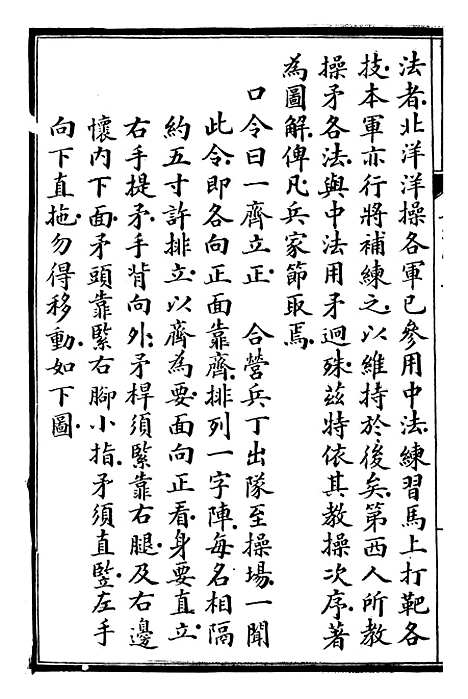 法者北洋洋操各軍已參用中法練習馬上打靶各
技本軍亦行將補練之以維持於後矣第西人所教
操矛各法與中法用矛迥殊茲特依其教操次序著
為圖解俾凡兵家節取焉
口令曰一齊立正　合營兵丁出隊至操場一聞
此令即各向正面靠齊排列一字陣每名相隔
約五寸許排立以齊為要面向正看身要直立
右手提矛手背向外矛桿須緊靠右腿及右邊
懷內下面矛頭靠緊右腳小指矛須直豎左手
向下直拖勿得移動如下圖